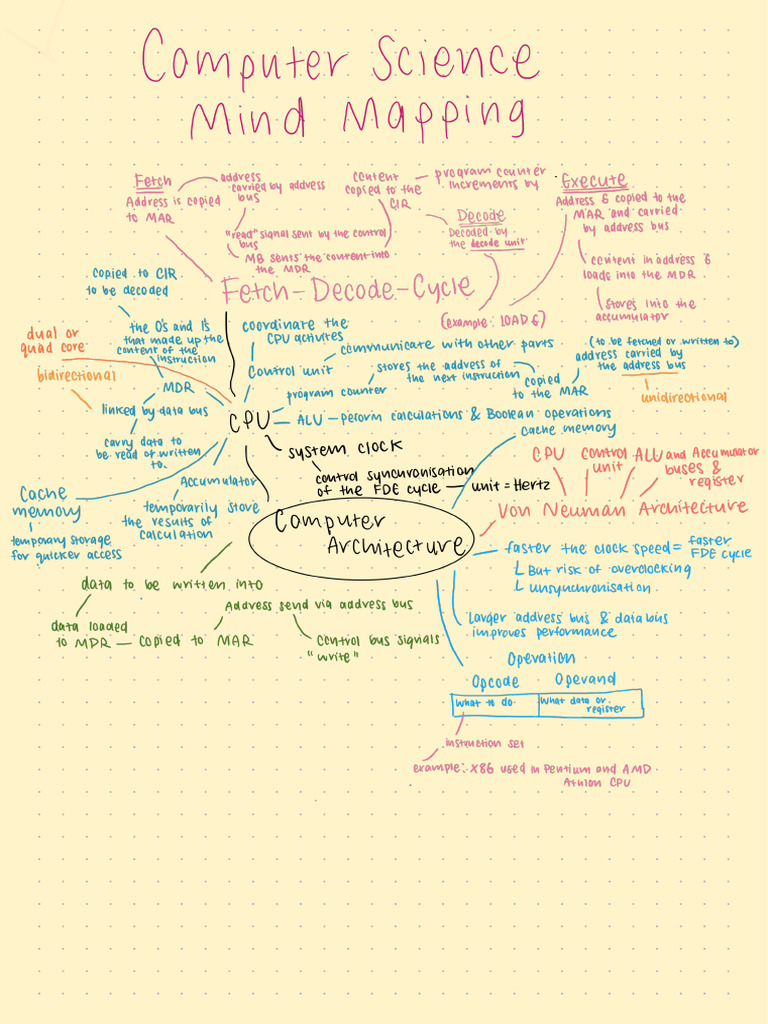 Computer Science
Mind Mapping
Fetch
Address is copied
to MAR
address
carried by address
bus
"read" signal sent by the control
bus
MB sents the content into
the MDR
content
copied to the
CIR
program counter
increments by
Decode
Decoded by
the decode unit
Execute
Address 6 copied to the
MAR and carried
by address bus
content in address 6
loads into the MDR
stores into the
accumulator
Fetch-Decode-Cycle
(example: LOAD 6)
copied to CIR
to be decoded
the 0's and 1's
that made up the
content of the
instruction
dual or
quad core
bidirectional
MDR
linked by data bus
carry data to
be read of written
to.
coordinate the
CPU activites
control unit
communicate with other parts
program counter
stores the address of
the next instruction
copied
to the MAR
(to be fetched or written to)
address carried by
the address bus
unidirectional
CPU
ALU - perform calculations & Boolean operations
cache memory
system clock
control synchronisation
of the FDE cycle
unit = Hertz
Accumulator
temporarily store
the results of
calculation
Cache
memory
temporary storage
for quicker access
CPU
control
unit
ALU and Accumulator
buses &
register
Von Neuman Architecture
Computer
Architecture
faster the clock speed = faster
FDE cycle
But risk of overclocking
unsynchronisation
data to be written into
data loaded
to MDR - copied to MAR
Address send via address bus
control bus signals
"write"
Larger address bus & data bus
improves performance
Operation
Opcode
Operand
What to do.
What data or.
register
instruction set
example: X86 used in Pentium and AMD
Athlon CPU